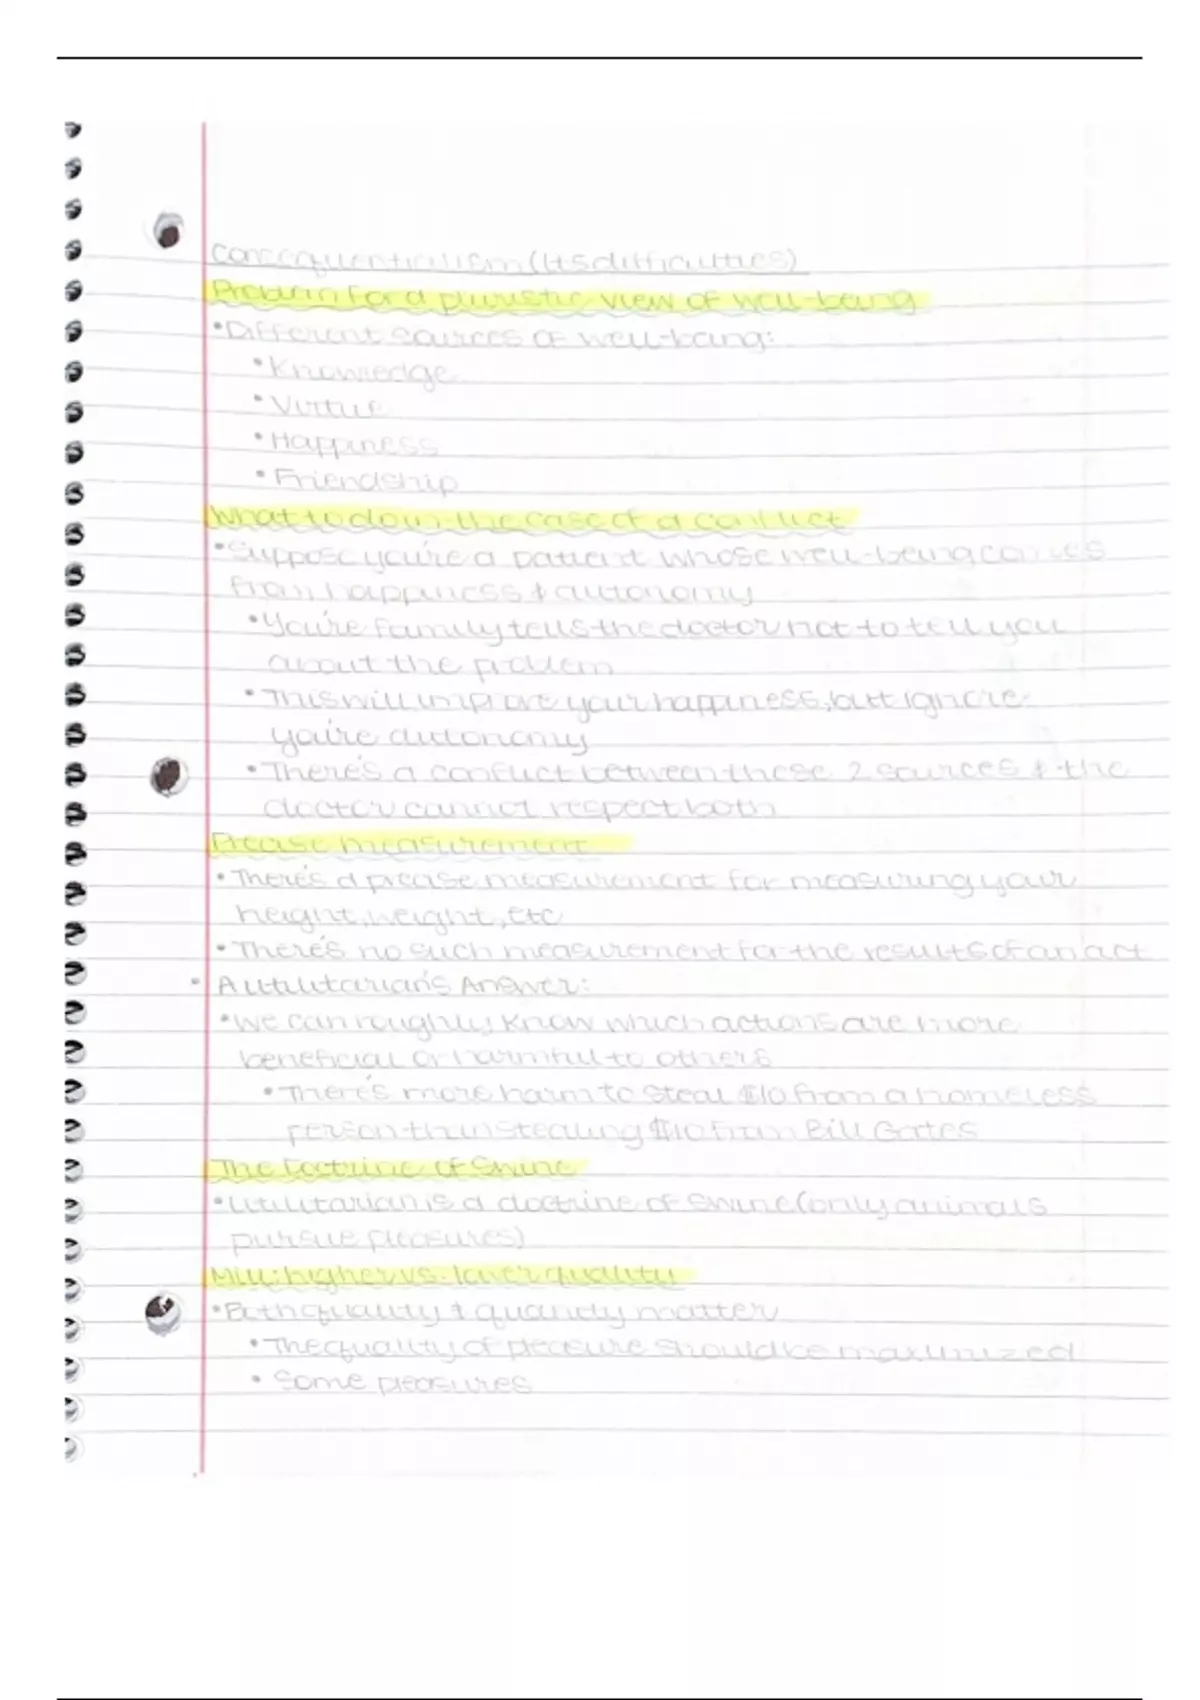 Consequentialism (Its difficulties)
Problem for a pluristic view of well-being
• Different sources of well-being:
• Knowledge
• Virtue
• Happiness
• Friendship
What to do in the case of a conflict
• Suppose you're a patient whose well-being comes
from happiness & autonomy
• You're family tells the doctor not to tell you
about the problem
• This will improve your happiness, but ignore
you're autonomy
• There's a conflict between these 2 sources & the
doctor cannot respect both
Precise measurement
• There's a precise measurement for measuring your
height, weight, etc
• There's no such measurement for the results of an act
• A utilitarian's Answer:
• We can roughly know which actions are more
beneficial or harmful to others
• There's more harm to steal $10 from a homeless
person than stealing $10 from Bill Gates
The Doctrine of Swine
• Utilitarian is a doctrine of swine (only animals
pursue pleasures)
Mill: higher vs. lower quality
• Both quality & quantity matter
• The quality of pleasure should be maximized
• Some pleasures